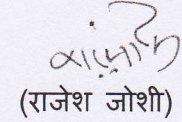 (राजेश जोशी)